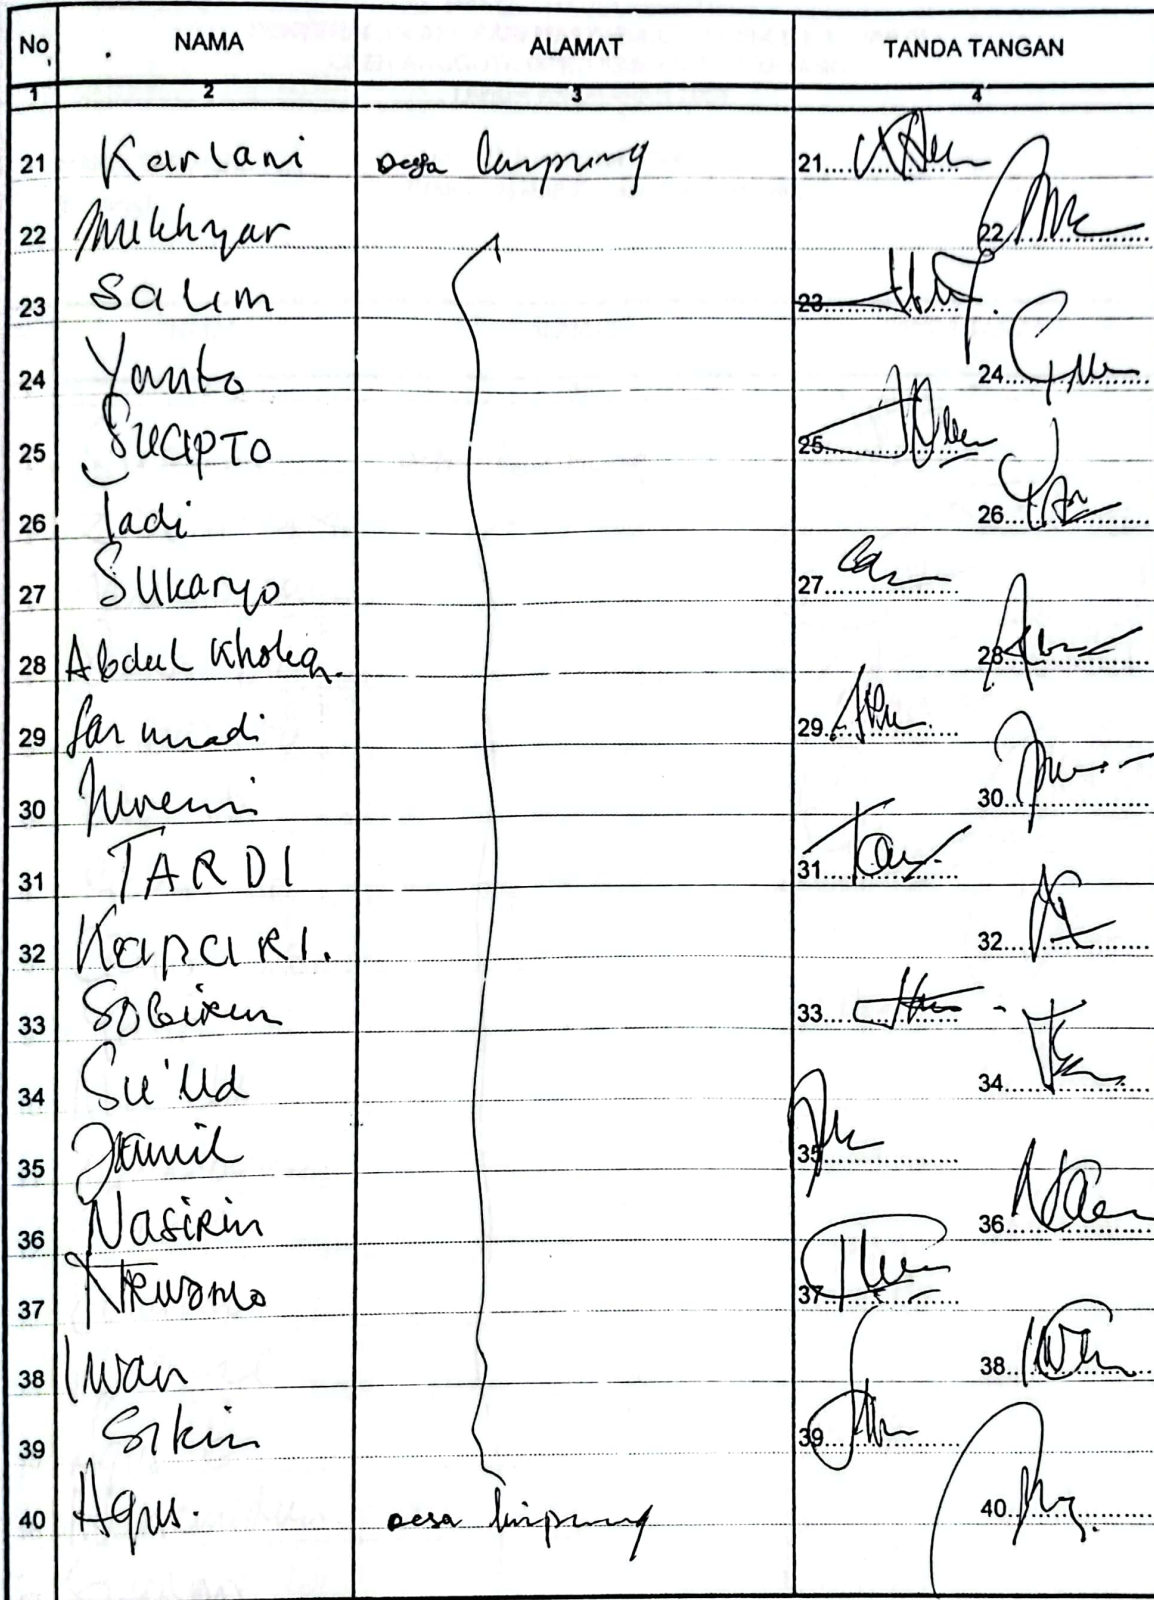 No NAMA ALAMAT TANDA TANGAN
1 2 3 4
21 Karlani Desa limpung 21
22 Mukhyar 22
23 Salim 23
24 Yanto 24
25 SucIPTO 25
26 Jadi 26
27 Sukaryo 27
28 Abdul Kholiq. 28
29 Sarmadi 29
30 30
31 TARDI 31
32 KapaRI. 32
33 Sobirin 33
34 Su'ud 34
35 Jamil 35
36 Nasirin 36
37 37
38 Iwan 38
39 Sikin 39
40 Agus. Desa limpung 40